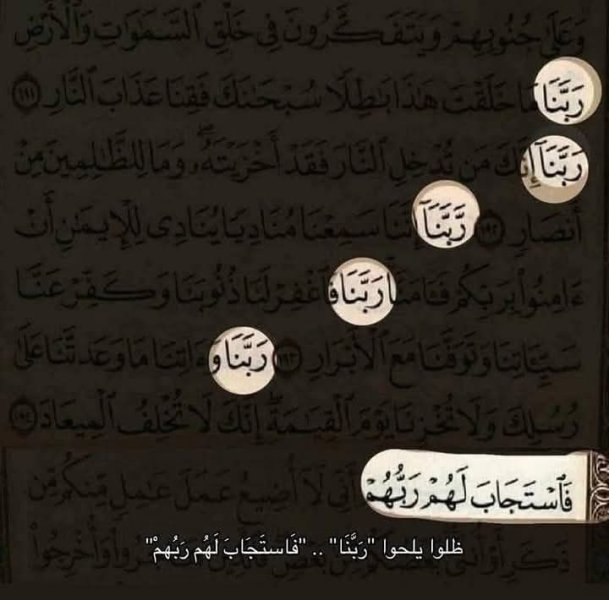 وَعَلَىٰ جُنُوبِهِمْ وَيَتَفَكَّرُونَ فِي خَلْقِ ٱلسَّمَٰوَٰتِ وَٱلْأَرْضِ
رَبَّنَا مَا خَلَقْتَ هَٰذَا بَٰطِلًا سُبْحَٰنَكَ فَقِنَا عَذَابَ ٱلنَّارِ ١٩١
رَبَّنَآ إِنَّكَ مَن تُدْخِلِ ٱلنَّارَ فَقَدْ أَخْزَيْتَهُۥ ۖ وَمَا لِلظَّٰلِمِينَ مِنْ
أَنصَارٍ ١٩٢ رَّبَّنَآ إِنَّنَا سَمِعْنَا مُنَادِيًا يُنَادِي لِلْإِيمَٰنِ أَنْ
ءَامِنُوا۟ بِرَبِّكُمْ فَـَٔامَنَّا رَبَّنَا فَٱغْفِرْ لَنَا ذُنُوبَنَا وَكَفِّرْ عَنَّا
سَيِّـَٔاتِنَا وَتَوَفَّنَا مَعَ ٱلْأَبْرَارِ ١٩٣ رَبَّنَا وَءَاتِنَا مَا وَعَدتَّنَا عَلَىٰ
رُسُلِكَ وَلَا تُخْزِنَا يَوْمَ ٱلْقِيَٰمَةِ ۗ إِنَّكَ لَا تُخْلِفُ ٱلْمِيعَادَ ١٩٤
فَٱسْتَجَابَ لَهُمْ رَبُّهُمْ أَنِّي لَآ أُضِيعُ عَمَلَ عَٰمِلٍ مِّنكُم مِّن
ظلوا يلحوا "رَبَّنَا" .. "فَاستَجَابَ لَهُم رَبُهمْ"
ذَكَرٍ أَوْ أُنثَىٰ وَأُخْرِجُوا۟